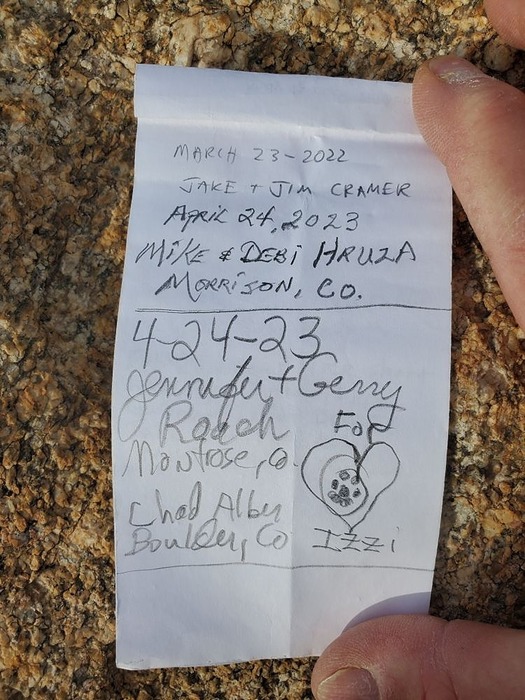 MARCH 23-2022
JAKE + JIM CRAMER
APRIL 24, 2023
MIKE & DEBI HRUZA
MORRISON, CO.
4-24-23
Jennifer + Gerry
Roach
Montrose, co.
For
Chad Alber
Boulder, Co
Izzi